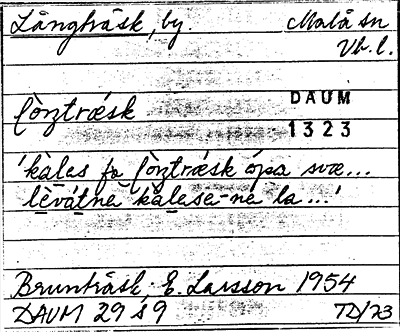 Långträsk, by. Malå sn
Vb. l.
DAUM
lòŋtrǽsk
1323
'kàlas fo lòŋtrǽsk ópa svæ...
lèvátne kalase-ne la...'
Brunträsk. E. Larsson 1954
DAUM 29 s 9 TD/73